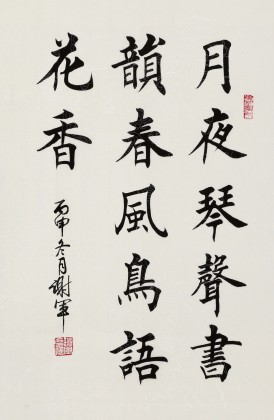 月夜琴聲書
韻春風鳥語
花香
丙申冬月謝軍